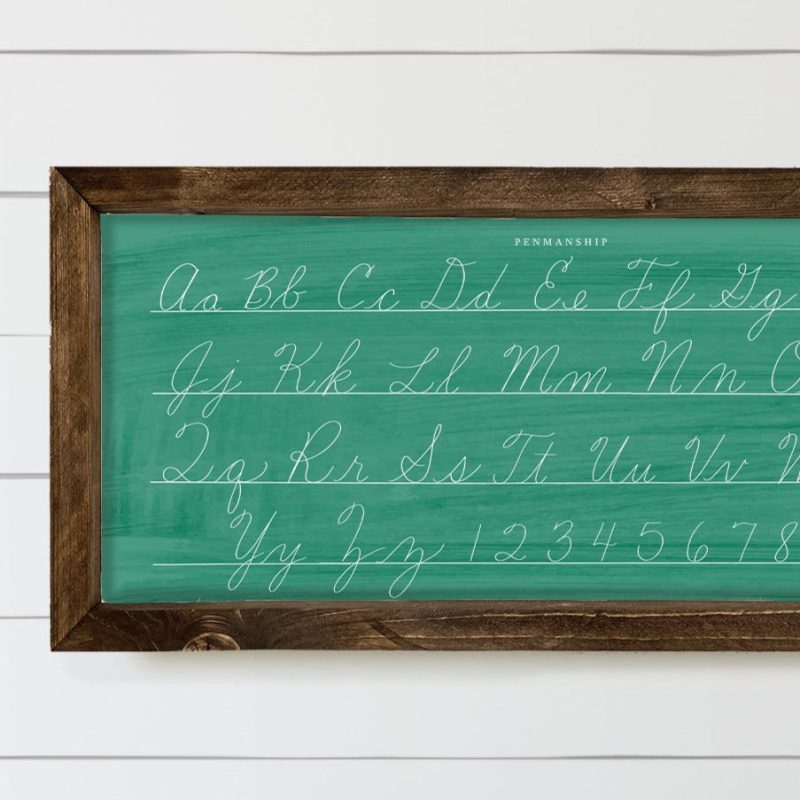 PENMANSHIP
Aa Bb Cc Dd Ee Ff Gg
Jj Kk Ll Mm Nn O
Qq Rr Ss Tt Uu Vv W
Yy Zz 1 2 3 4 5 6 7 8